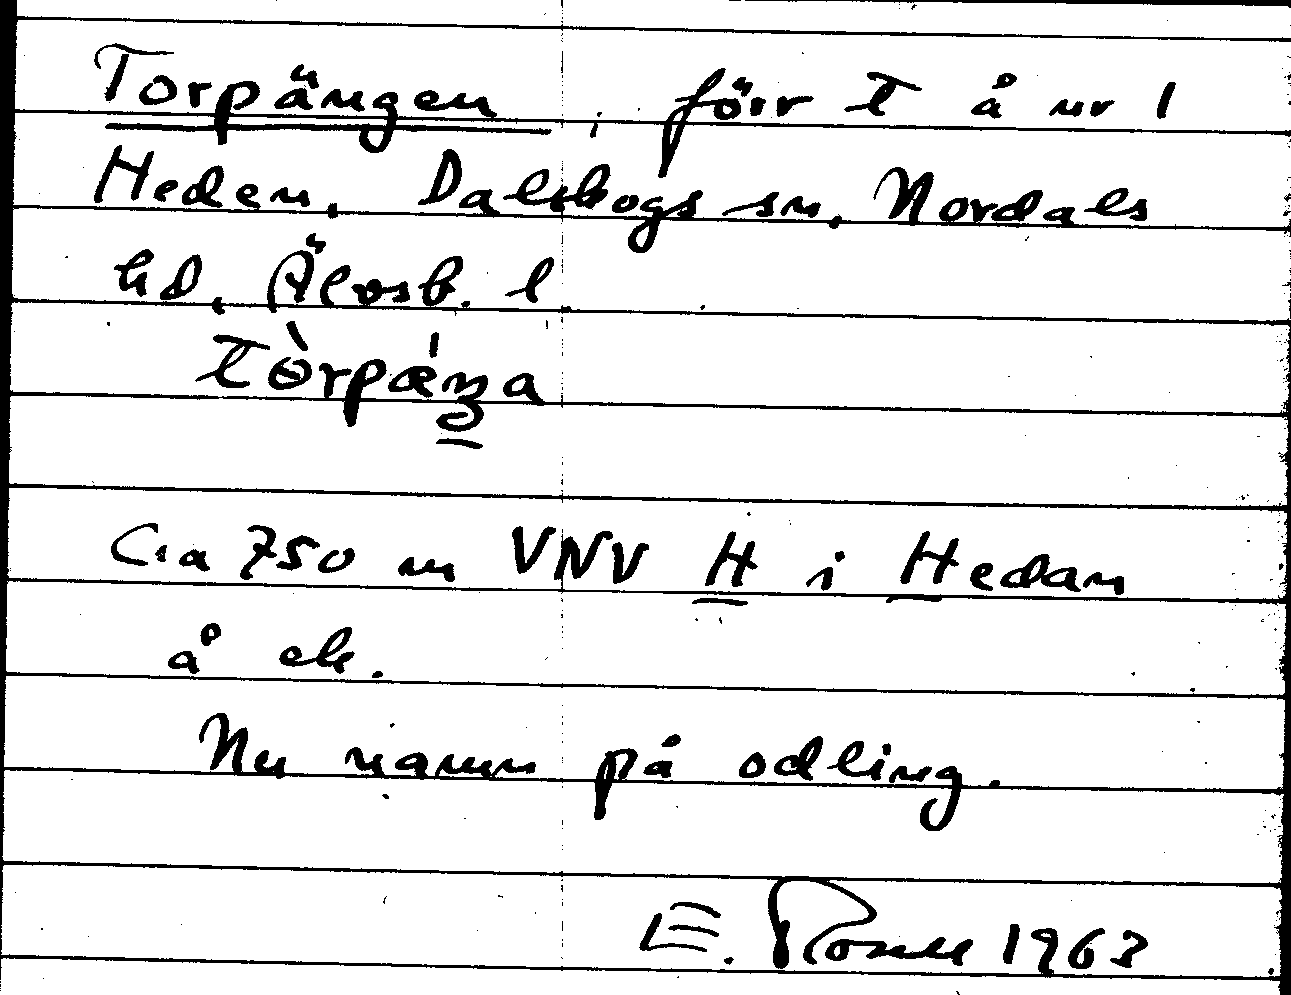 Torpängen, förr T å nr 1
Heden, Dalskogs sn, Nordals
hd, Älvsb. l
Tòrpǽŋa
Ca 750 m VNV H i Hedan
å ek.
Nu namn på odling.
E. 1963